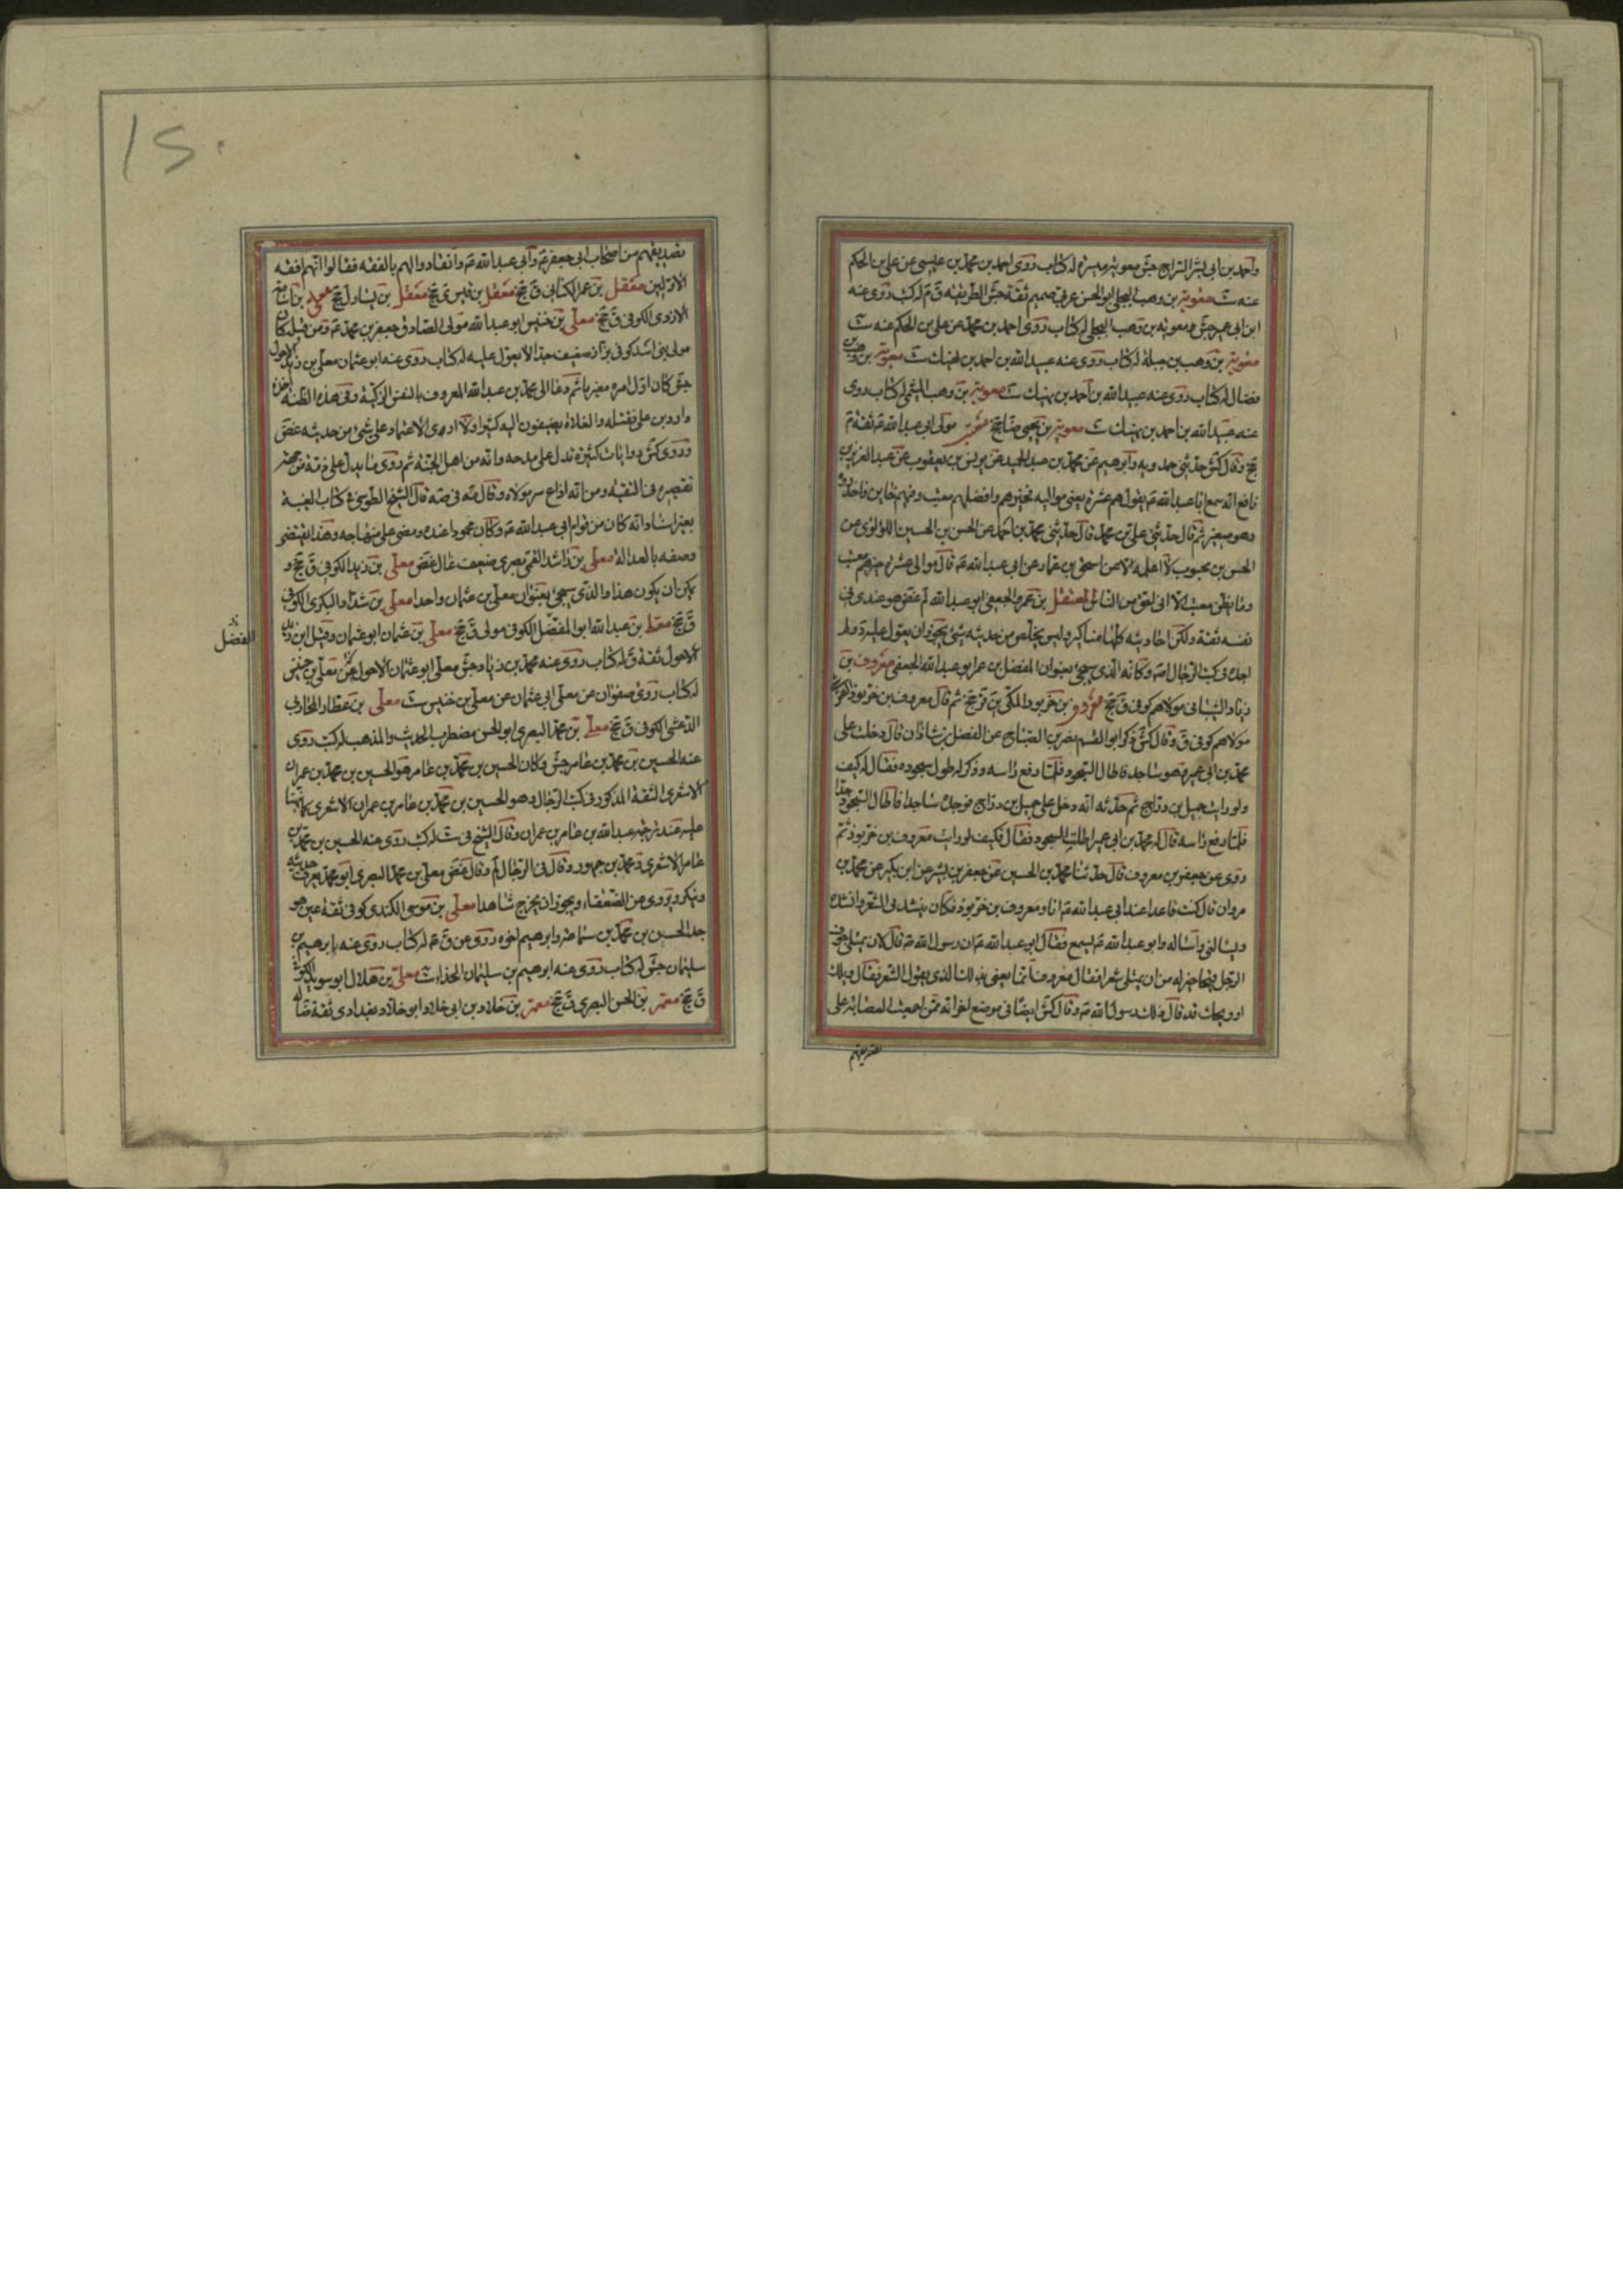 واحمد بن ابي بشر السراج جش معوية بن ميسرة له كتاب روى احمد بن محمد بن عيسى عن علي بن الحكم
عنه ست معوية بن وهب البجلي ابو الحسن عربي صميم ثقة حسن الطريقة ق م له كتب روى عنه
ابن ابي عمير جش ومعوية بن وهب البجلي له كتاب روى احمد بن محمد عن علي بن الحكم عنه ست
معوية بن وهب بن جبلة له كتاب روى عنه عبيد الله بن احمد بن نهيك ست معوية بن وهب بن
فضال له كتاب روى عنه عبيد الله بن احمد بن نهيك ست معوية بن وهب الميثمي له كتاب روى
عنه عبيد الله بن احمد بن نهيك ست معوية بن يحيى ضا جخ معتب مولى ابي عبد الله ع ثقة م
جخ وقال كش حدثني حمدويه وابرهيم عن محمد بن عبد الحميد عن يونس بن يعقوب عن عبد العزيز بن
نافع انه سمع ابا عبد الله ع يقول هم عشرة يعني مواليه فخيرهم وافضلهم معتب وفيهم خاين فاحذروه
وهو صغير ثم قال حدثني علي بن محمد قال حدثني محمد بن احمد عن الحسن بن الحسين اللؤلؤي عن
الحسن بن محبوب لا اعلمه الا عن اسحق بن عمار عن ابي عبد الله ع قال موالي عشرة خيرهم معتب
وما يظن معتب الا اني اسحق من الناس المعتقل بن عمر الجعفي ابو عبد الله لم غض هو عندي في
نفسه ثقة ولكن احاديثه كلها مناكير وليس يخلص من حديثه شيء يجوز ان يعول عليه د ولم
اجده في كتب الرجال اصلا وكانه الذي سيجيء بعنوان المفضل بن عمر ابو عبد الله الجعفي معروف بن
زياد الشيباني مولاهم كوفي ق جخ معروف بن خربوذ المكي ين قر جخ ثم قال معروف بن خربوذ القرشي
مولاهم كوفي ق وقال كش ذكر ابو القسم نصر بن الصباح عن الفضل بن شاذان قال دخلت على
محمد بن ابي عمير وهو ساجد فاطال السجود فلما رفع راسه وذكر له طول سجوده فقال له كيف
ولو رايت جميل بن دراج ثم حدثه انه دخل على جميل بن دراج فوجده ساجدا فاطال السجود جدا
فلما رفع راسه قال له محمد بن ابي عمير اطلت السجود فقال فكيف لو رايت معروف بن خربوذ ثم
روى عن جعفر بن معروف قال حدثنا محمد بن الحسين عن جعفر بن بشير عن ابن بكير عن محمد بن
مروان قال كنت قاعدا عند ابي عبد الله ع انا ومعروف بن خربوذ فكان ينشدني الشعر وانشده
ويسالني واساله وابو عبد الله ع يسمع فقال ابو عبد الله ع ان رسول الله ص قال لان يمتلي جوف
الرجل قيحا خير له من ان يمتلي شعرا فقال معروف انما يعني بذلك الذي يقول الشعر فقال ويلك
او ويحك قد قال ذلك رسول الله ص وقال كش ايضا في موضع اخر انه ممن اجمعت العصابة على
تصديقهم
تصديقهم من اصحاب ابي جعفر ع وابي عبد الله ع وانقادوا لهم بالفقه فقالوا انهم افقه
الاولين معقل بن عمر الكناني ق جخ معقل بن قيس ي جخ معقل بن يسار ل جخ معلى بن اسامة
الازدي الكوفي ق جخ معلى بن خنيس ابو عبد الله مولى الصادق جعفر بن محمد ع ومن قبله كان
مولى بني اسد كوفي بزاز ضعيف جدا لا يعول عليه له كتاب روى عنه ابو عثمان معلى بن زيد الاحول
جش كان اول امره مغيريا ثم دعا الى محمد بن عبد الله المعروف بالنفس الزكية وفي هذه الظنة اخذه
داود بن علي فقتله والغلاة يضيفون اليه كثيرا ولا ارى الاعتماد على شيء من حديثه غض
وروى كش روايات كثيرة تدل على مدحه وانه من اهل الجنة ثم روى ما يدل على ذمه من جهة
تقصيره في التقية ومن انه اذاع سر مولاه وقال مه في صه قال الشيخ الطوسي في كتاب الغيبة
بغير اسناد انه كان من قوام ابي عبد الله ع وكان محمودا عنده ومضى على منهاجه وهذا يقتضي
وصفه بالعدالة معلى بن راشد القمي بصري ضعيف غال غض معلى بن زيد الكوفي ق جخ و
يمكن ان يكون هذا والذي سيجيء بعنوان معلى بن عثمان واحدا معلى بن شداد البكري الكوفي
ق جخ معلى بن عبد الله ابو المفضل الكوفي مولى ق جخ معلى بن عثمان ابو عثمان وقيل ابن زيد
الفضل
الاحول ثقة ق له كتاب روى عنه محمد بن زياد جش معلى ابو عثمان الاحول عن معلى بن خنيس
له كتاب روى صفوان عن معلى ابي عثمان عن معلى بن خنيس ست معلى بن عطار المحاربي
الدغشي الكوفي ق جخ معلى بن محمد البصري ابو الحسن مضطرب الحديث والمذهب له كتب روى
عنه الحسين بن محمد بن عامر جش وكان الحسين بن محمد بن عامر هو الحسين بن محمد بن عمران
الاشعري الثقة المذكور في كتب الرجال وهو الحسين بن محمد بن عامر بن عمران الاشعري كما نبهنا
عليه عند ترجمة عبد الله بن عامر بن عمران وقال الشيخ في ست له كتب روى عنه الحسين بن محمد بن
عامر الاشعري ومحمد بن جمهور وقال في الرجال لم وقال غض معلى بن محمد البصري ابو محمد يعرف حديثه
وينكر ويروي عن الضعفاء ويجوز ان يخرج شاهدا معلى بن موسى الكندي كوفي ثقة عين هو
جد الحسن بن محمد بن سماعة وابرهيم اخوه روى عن ق ع له كتاب روى عنه ابرهيم بن
سليمان جش له كتاب روى عنه ابرهيم بن سليمان الخزاز ست معلى بن هلال ابو سويد الكوفي
ق جخ معمر بن الحسن البصري ق جخ معمر بن خلاد بن ابي خلاد ابو خلاد بغدادي ثقة ضا له